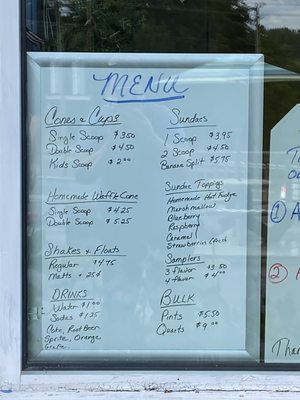 MENU
Cones & Cups
Single Scoop $3.50
Double Scoop $4.50
Kids Scoop $2.00
Homemade Waffle Cone
Single Scoop $4.25
Double Scoop $5.25
Shakes & Floats
Regular $4.75
Malts + 25¢
DRINKS
Water $1.00
Sodas $1.25
Coke, Root Beer
Sprite, Orange
Grape
Sundaes
1 Scoop $3.95
2 Scoop $4.50
Banana Split $5.75
Sundae Toppings
Homemade Hot Fudge
Marshmallow
Blueberry
Raspberry
Caramel
Strawberries
Samplers
3 flavor $3.50
4 flavor $4.00
BULK
Pints $5.50
Quarts $9.00
1
2